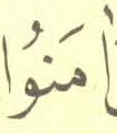 أَمَنُوا